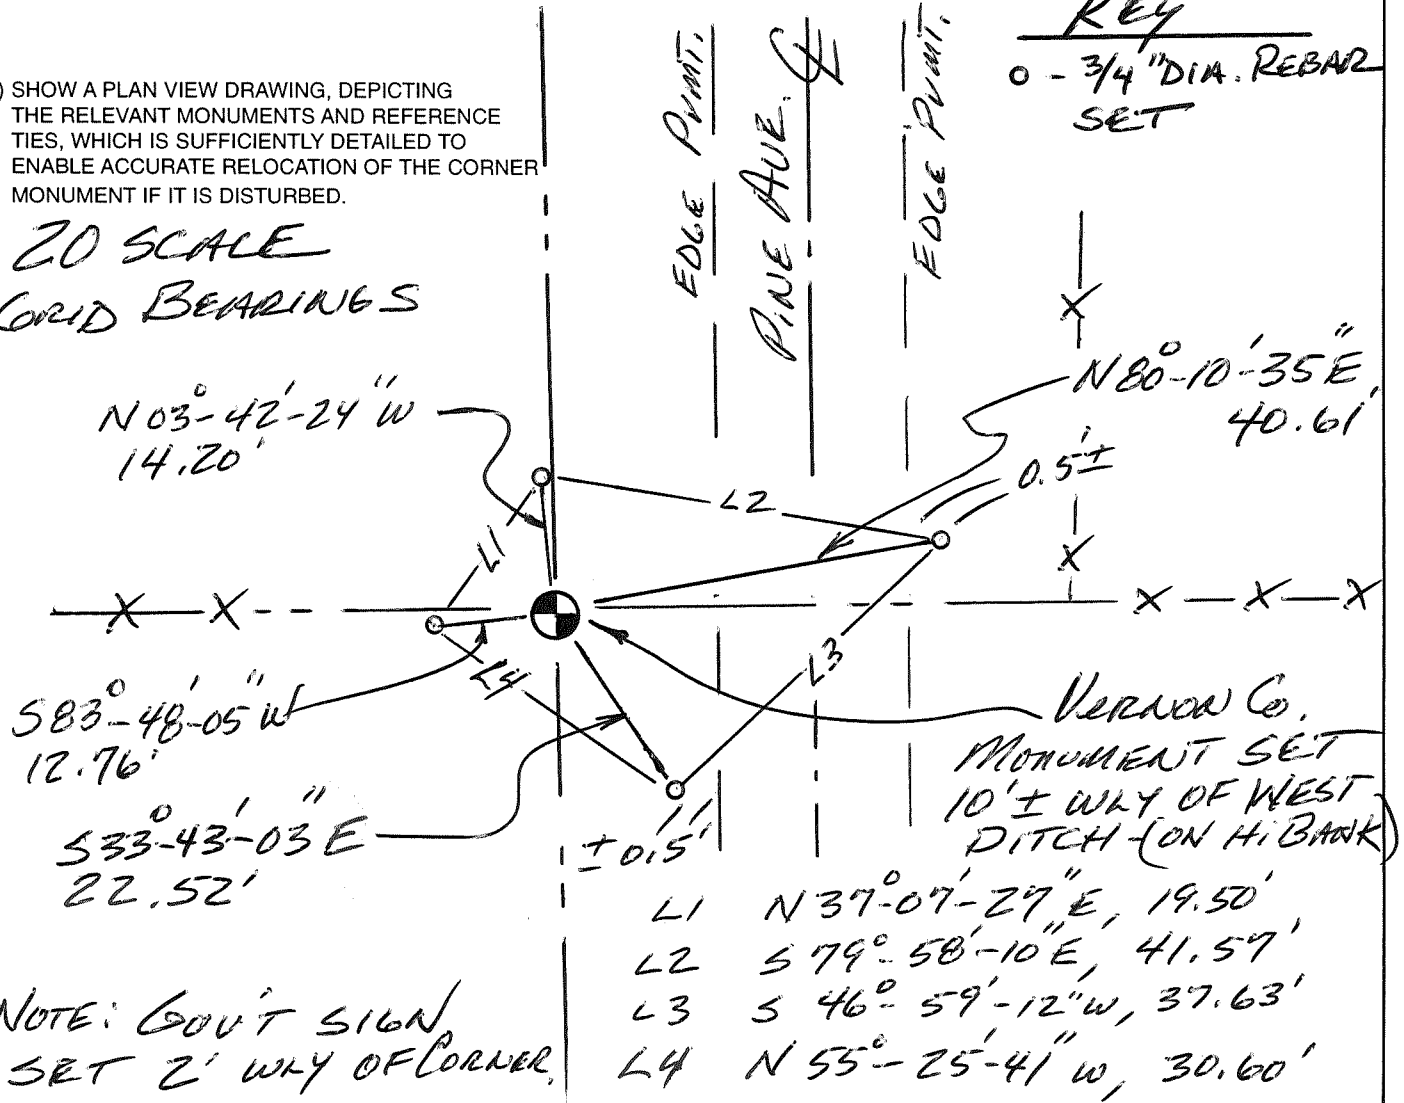 KEY
o - 3/4" DIA. REBAR
SET
) SHOW A PLAN VIEW DRAWING, DEPICTING
THE RELEVANT MONUMENTS AND REFERENCE
TIES, WHICH IS SUFFICIENTLY DETAILED TO
ENABLE ACCURATE RELOCATION OF THE CORNER
MONUMENT IF IT IS DISTURBED.
20 SCALE
GRID BEARINGS
EDGE PVMT.
PINE AVE. ℄
EDGE PVMT.
N03°-42'-24"W
14.20'
N80°-10'-35"E
40.61'
0.5'±
L1
L2
L3
L4
S83°-48'-05"W
12.76'
S33°-43'-03"E
22.52'
±0.5'
VERNON CO.
MONUMENT SET
10'± WLY OF WEST
DITCH-(ON HI BANK)
L1 N37°-07'-27"E, 19.50'
L2 S 79°-58'-10"E, 41.57'
L3 S 46°-59'-12"W, 37.63'
L4 N55°-25'-41"W, 30.60'
NOTE: GOV'T SIGN
SET 2' WLY OF CORNER.